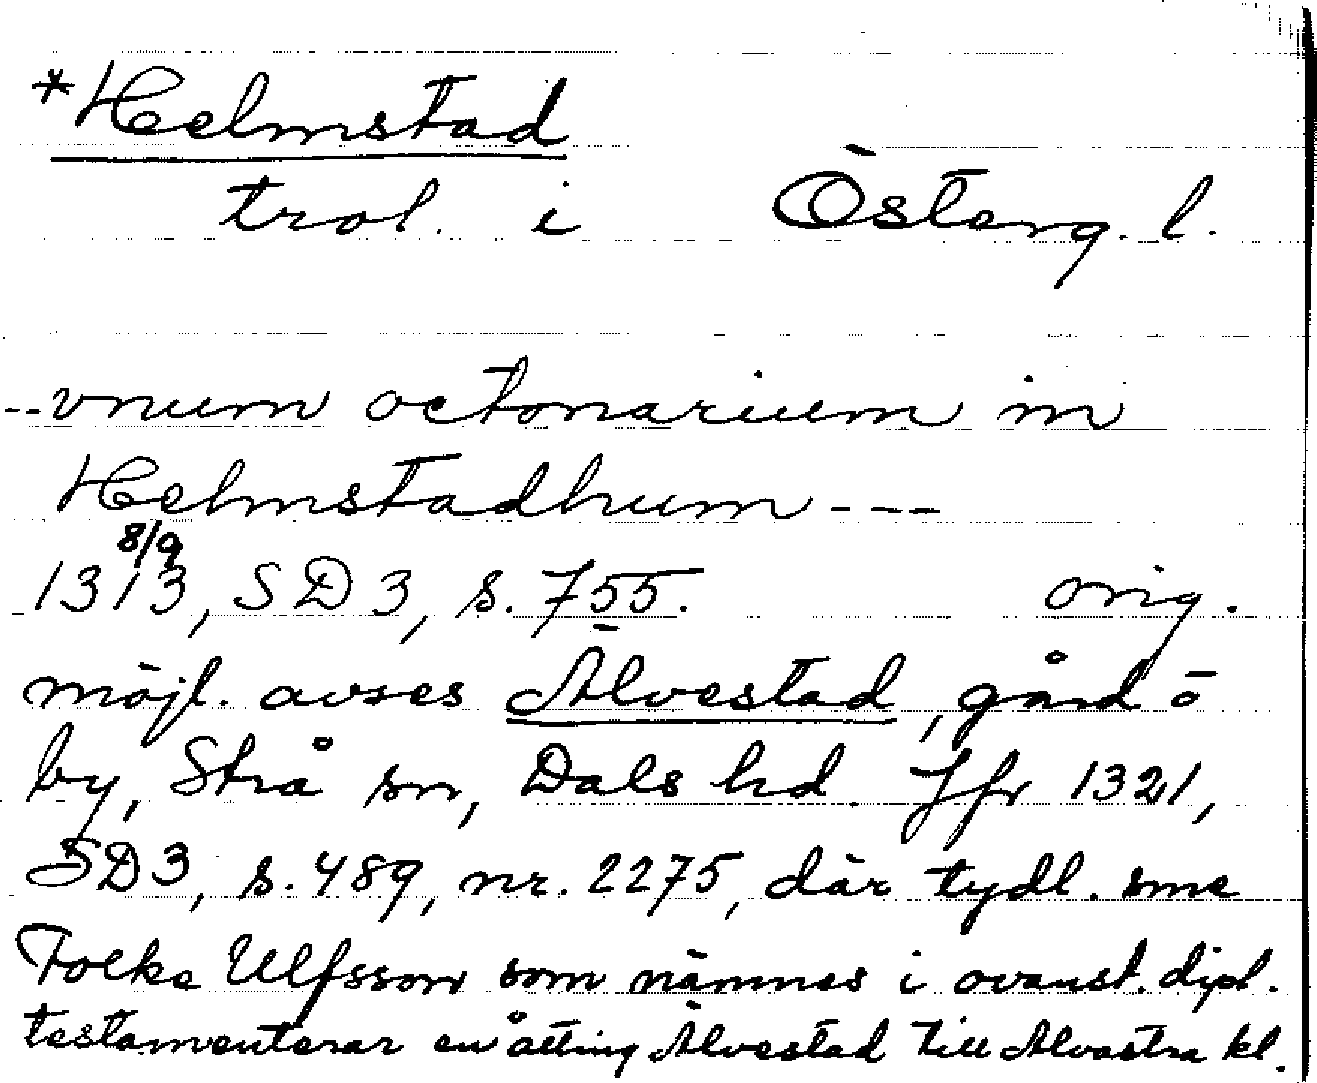 *Helmstad
trol. i Österg. l.
--vnum octonarium in
Helmstadhum ---
8/9
1313, SD 3, s. 755. orig.
möjl. avses Älvestad, gård o
by, Strå sn, Dals hd. Jfr 1321,
SD3, s. 489, nr. 2275, där tydl. sme
Folke Ulfsson som nämnes i ovanst. dipl.
testamenterar en åtting Älvestad till Alvastra kl.